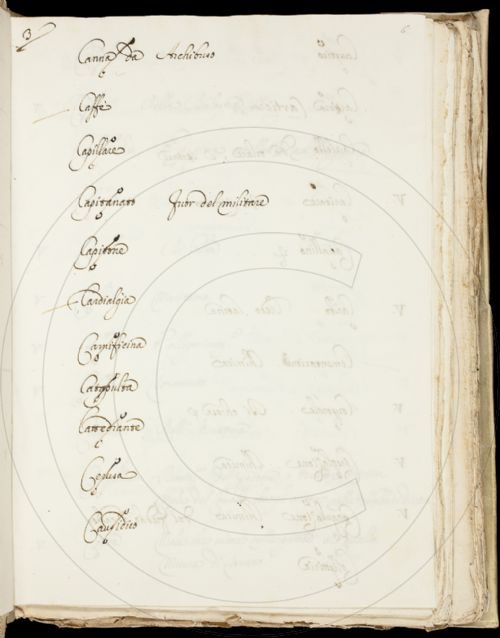 3
6
Canna da Archibuso
Caffè
Capillare
Capitanato Iuor del militare
Capitone
Cardialgia
Carnificina
Catapulta
Cattedrante
Causidico